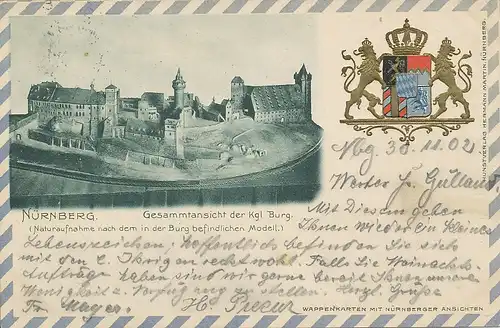 NÜRNBERG. Gesammtansicht der Kgl Burg.
(Naturaufnahme nach dem in der Burg befindlichen Modell.)
KUNSTVERLAG HERMANN MARTIN, NÜRNBERG.
Nbg 30.11.02
Werter Fr. Gulland
Mit Diesem geben
Ihnen wieder ein kleines
Lebenszeichen; Hoffentlich befinden Sie sich
mit den l. Ihrigen recht wohl. Falls Sie Weinachts-
Aufträge haben sind wir gerne bereit Ihnen unsere
Wenigkeit z. Verfügung zu stellen. Herzl. Grüße
Fr. Mayer. H.
WAPPENKARTEN MIT NÜRNBERGER ANSICHTEN